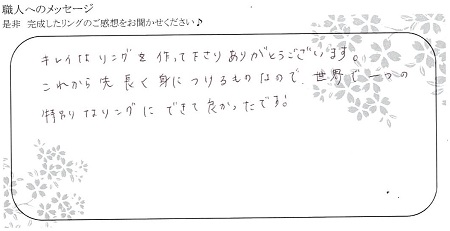 職人へのメッセージ
是非 完成したリングのご感想をお聞かせください♪
キレイなリングを作って下さりありがとうございます。
これから先長く身につけるものなので、世界で一つの
特別なリングにできて良かったです!